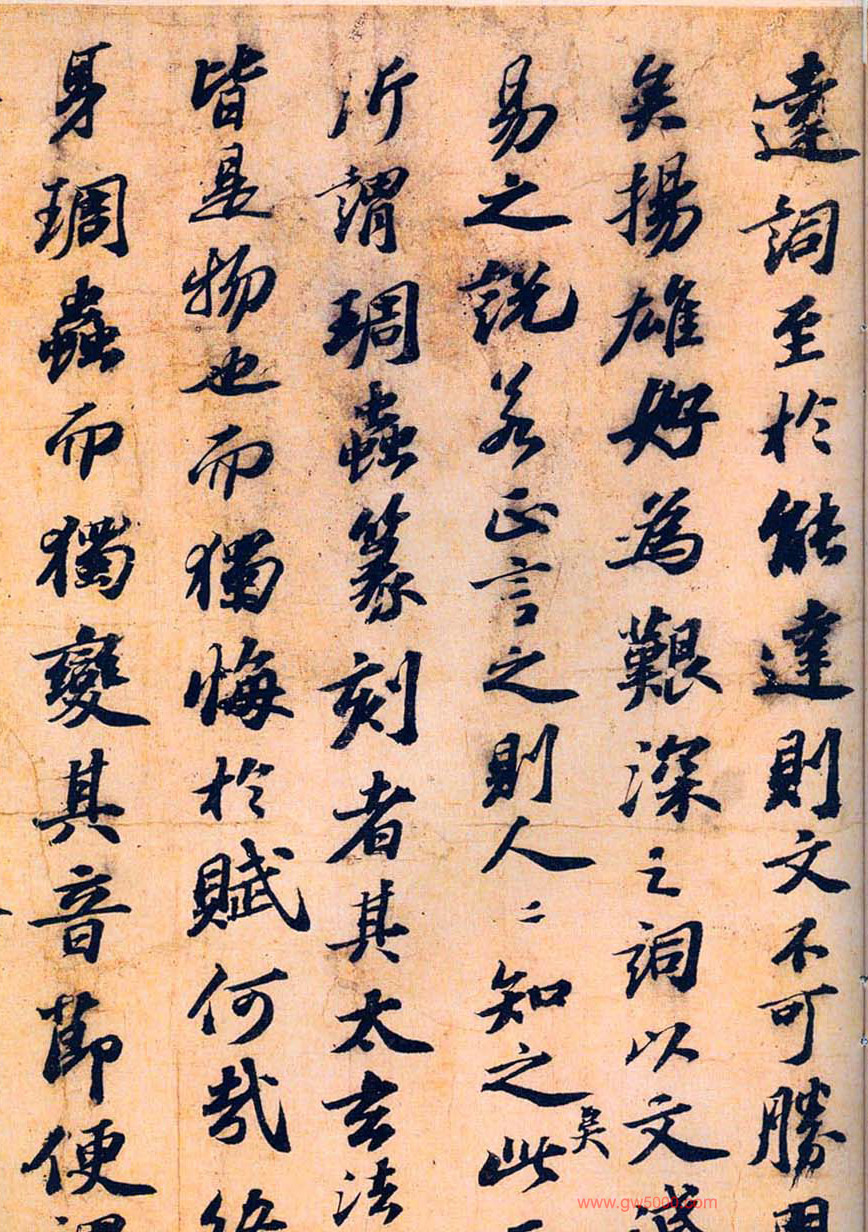 達詞至於能達則文不可勝用
矣揚雄好為艱深之詞以文淺
易之說若正言之則人〻知之矣此
所謂琱蟲篆刻者其太玄法
皆是物也而獨悔於賦何哉終
身琱蟲而獨變其音節便謂
www.gw5000.com